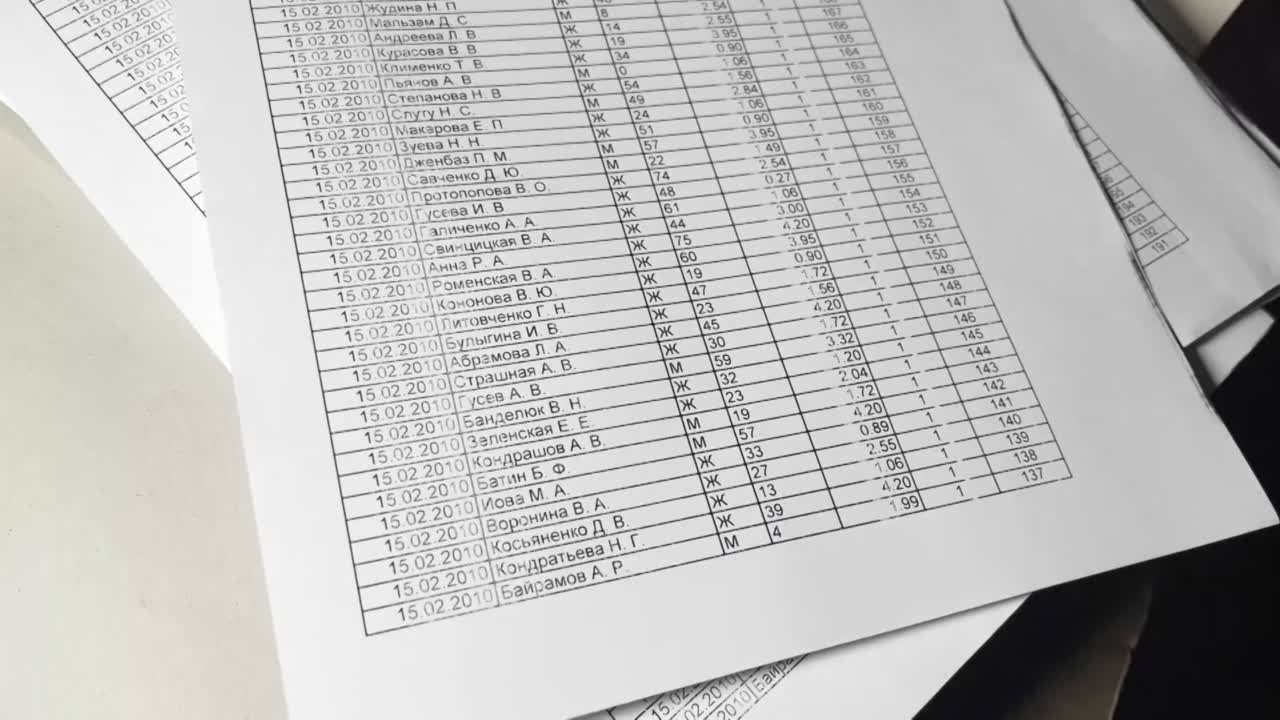 15.02.2010 Жудина Н. П
15.02.2010 Мальзам Д. С М 8 2.54 1
15.02.2010 Андреева Л. В Ж 14 2.55 1 167
15.02.2010 Курасова В. В Ж 19 3.95 1 166
15.02.2010 Клименко Т. В Ж 34 0.90 1 165
15.02.2010 Пьянов А. В М 0 1.06 1 164
15.02.2010 Степанова Н. В Ж 54 1.56 1 163
15.02.2010 Слугу Н. С. М 49 2.84 1 162
15.02.2010 Макарова Е. П Ж 24 1.06 1 161
15.02.2010 Зуева Н. Н Ж 51 0.90 1 160
15.02.2010 Дженбаз П. М. М 57 3.95 1 159
15.02.2010 Савченко Д. Ю. М 22 1.49 1 158
15.02.2010 Протопопова В. О. Ж 74 2.54 1 157
15.02.2010 Гусева И. В Ж 48 0.27 1 156
15.02.2010 Галиченко А. А. Ж 61 1.06 1 155
15.02.2010 Свинцицкая В. А. Ж 44 3.00 1 154
15.02.2010 Анна Р. А. Ж 75 4.20 1 153
15.02.2010 Роменская В. А. Ж 60 3.95 1 152
15.02.2010 Кононова В. Ю. Ж 19 0.90 1 151
15.02.2010 Литовченко Г. Н. Ж 47 1.72 1 150
15.02.2010 Булыгина И. В. Ж 23 1.56 1 149
15.02.2010 Абрамова Л. А. Ж 45 4.20 1 148
15.02.2010 Страшная А. В. Ж 30 1.72 1 147
15.02.2010 Гусев А. В. М 59 3.32 1 146
15.02.2010 Банделюк В. Н. Ж 32 1.20 1 145
15.02.2010 Зеленская Е. Е. Ж 23 2.04 1 144
15.02.2010 Кондрашов А. В. М 19 1.72 1 143
15.02.2010 Батин Б. Ф. М 57 4.20 1 142
15.02.2010 Иова М. А. Ж 33 0.89 1 141
15.02.2010 Воронина В. А. Ж 27 2.55 1 140
15.02.2010 Косьяненко Д. В. Ж 13 1.06 1 139
15.02.2010 Кондратьева Н. Г. Ж 39 4.20 1 138
15.02.2010 Байрамов А. Р. М 4 1.99 1 137
194
193
192
191